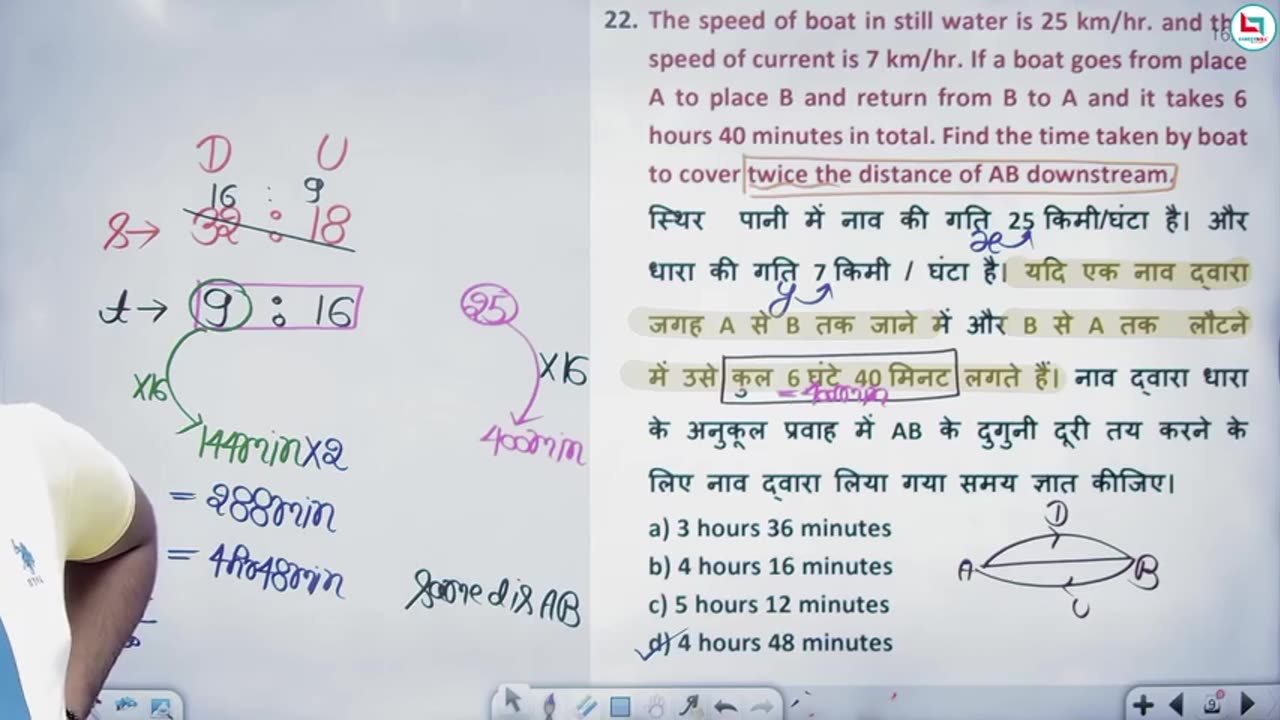 22. The speed of boat in still water is 25 km/hr. and th
speed of current is 7 km/hr. If a boat goes from place
A to place B and return from B to A and it takes 6
hours 40 minutes in total. Find the time taken by boat
to cover twice the distance of AB downstream.
स्थिर पानी में नाव की गति 25 किमी/घंटा है। और
x
धारा की गति 7 किमी / घंटा है। यदि एक नाव द्वारा
y
जगह A से B तक जाने में और B से A तक लौटने
में उसे कुल 6 घंटे 40 मिनट लगते हैं। नाव द्वारा धारा
= 400min
के अनुकूल प्रवाह में AB के दुगुनी दूरी तय करने के
लिए नाव द्वारा लिया गया समय ज्ञात कीजिए।
a) 3 hours 36 minutes
b) 4 hours 16 minutes
c) 5 hours 12 minutes
d) 4 hours 48 minutes
D
A B
U
D U
16 : 9
S→ 32 : 18
t→ 9 : 16 25
×16 ×16
144min×2 400min
= 288min
= 4hr48min
Same dis AB
9